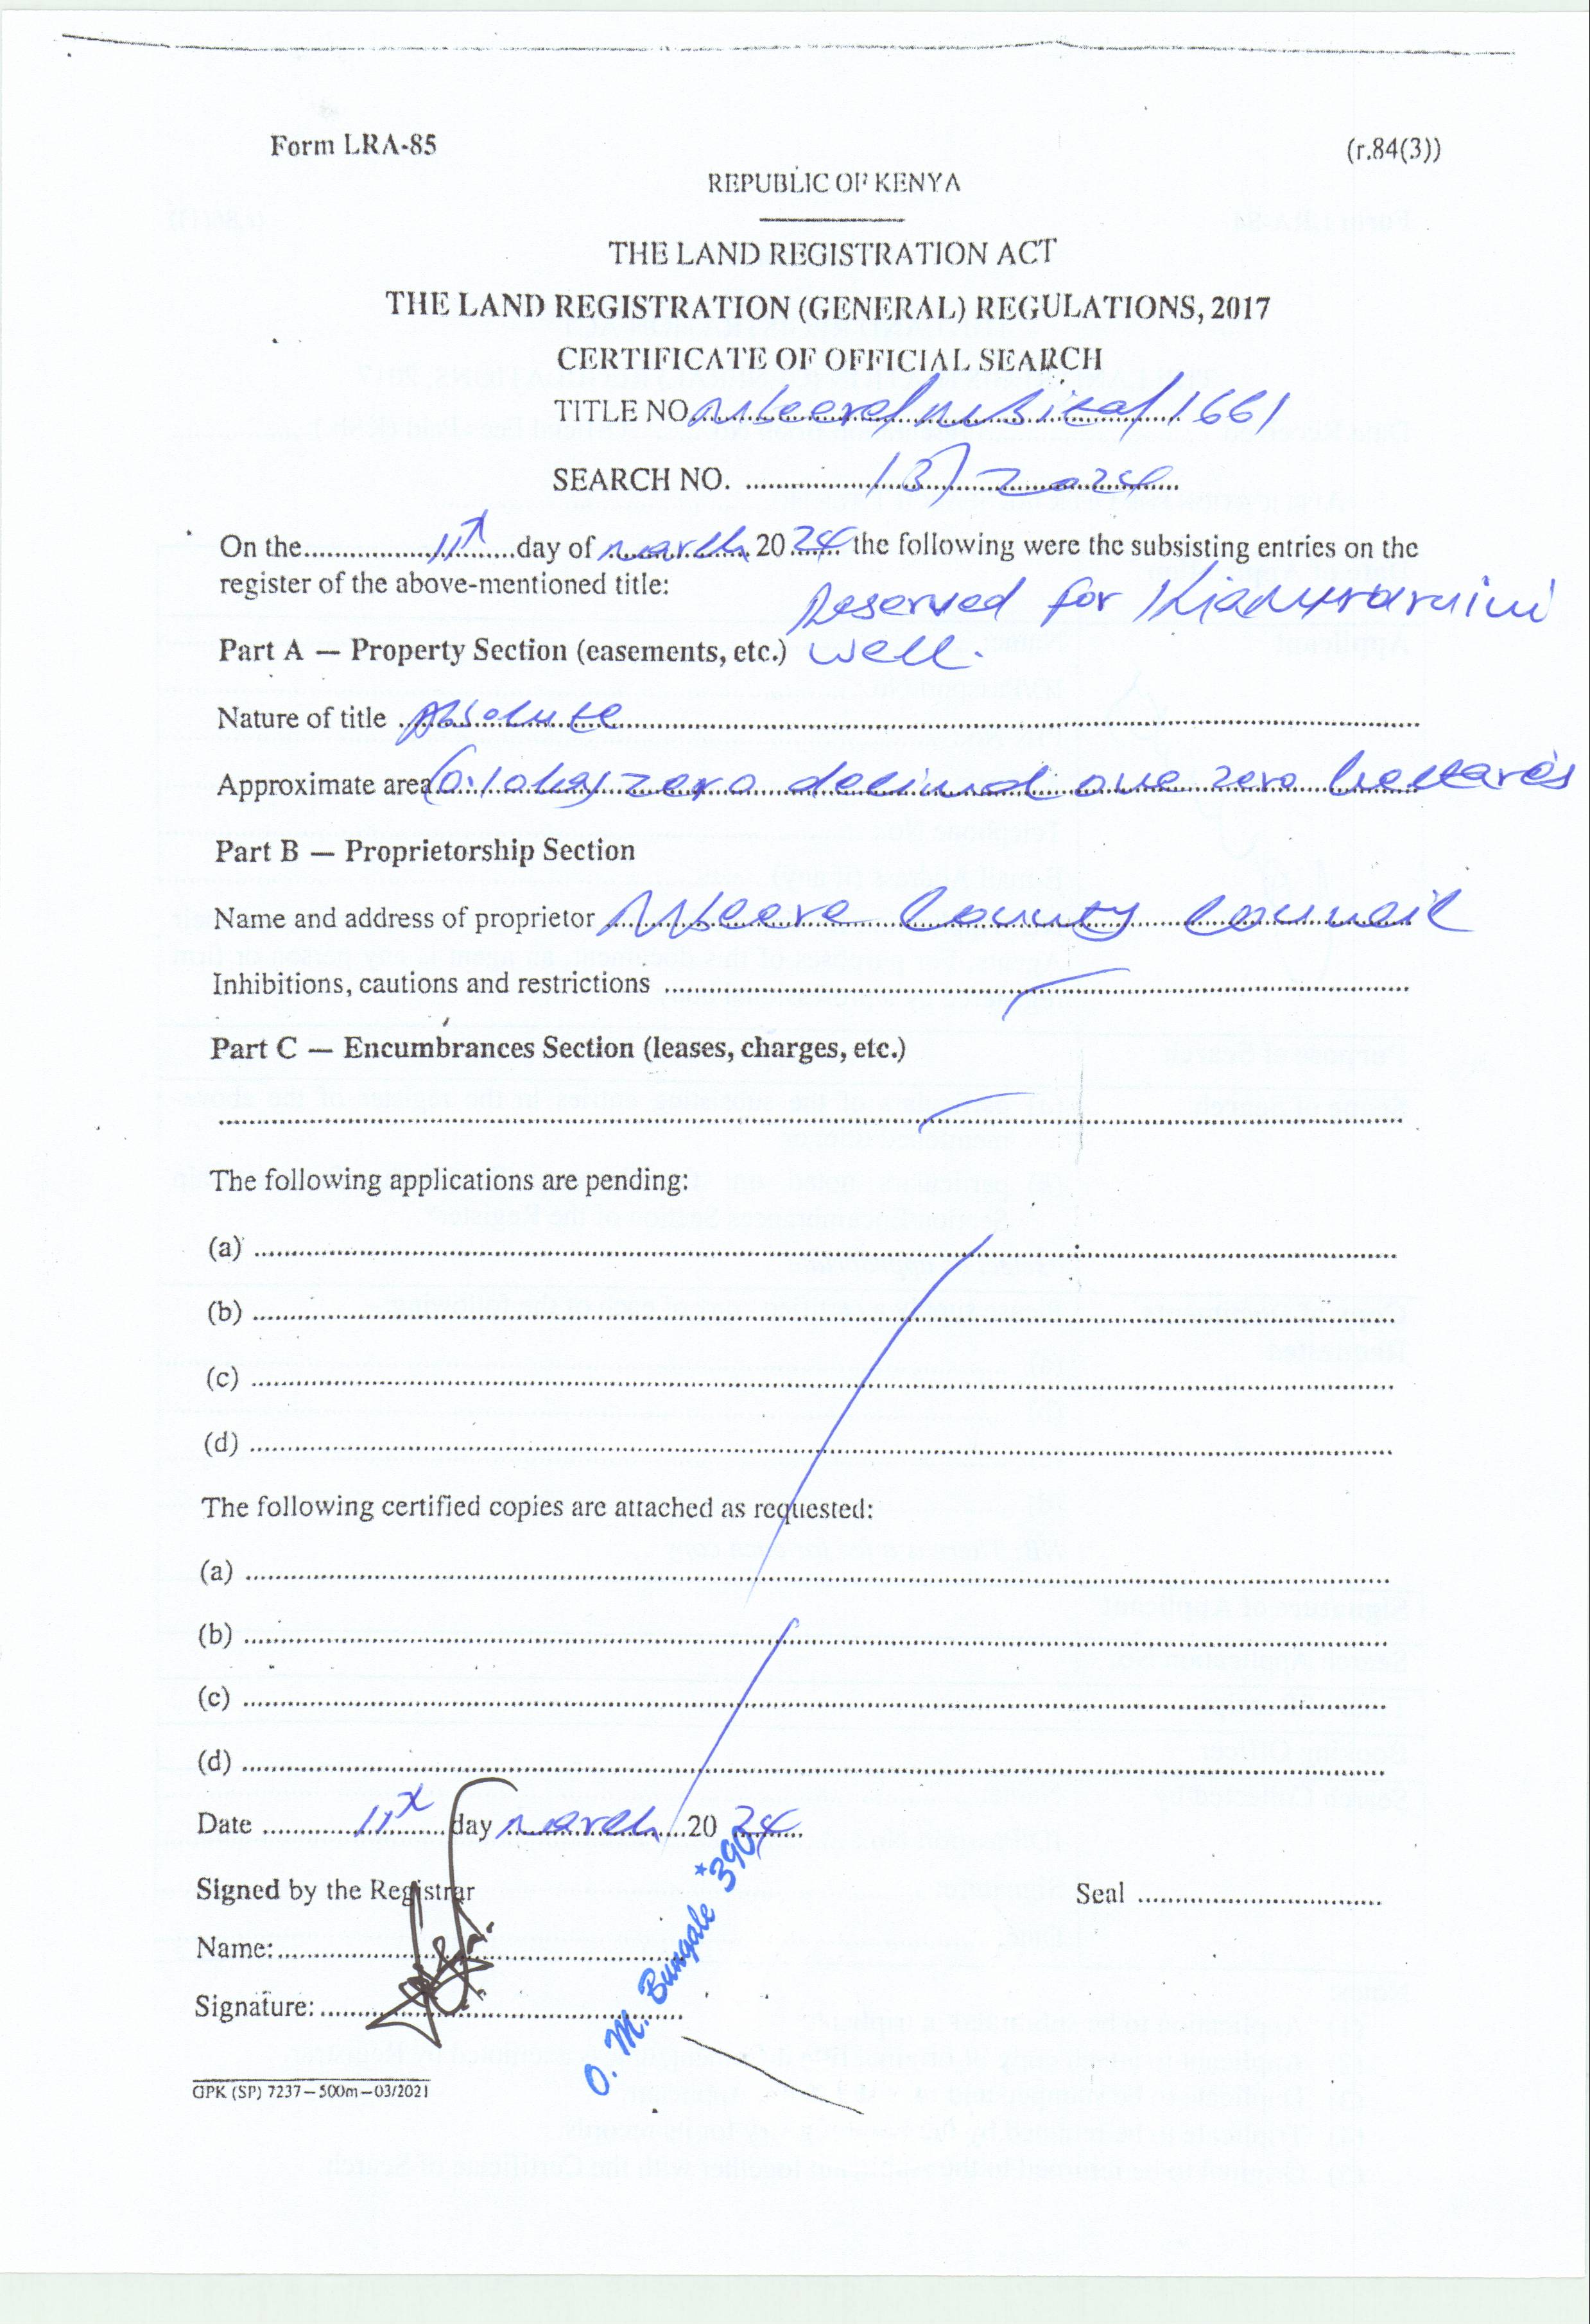 Form LRA-85 (r.84(3))
REPUBLIC OF KENYA
THE LAND REGISTRATION ACT
THE LAND REGISTRATION (GENERAL) REGULATIONS, 2017
CERTIFICATE OF OFFICIAL SEARCH
TITLE NO. Mbeere/Mbita/1661
SEARCH NO. 13/2024
On the 11th day of march 2024 the following were the subsisting entries on the
register of the above-mentioned title:
Reserved for
Part A — Property Section (easements, etc.) well.
Nature of title Absolute
Approximate area (0.10ha) zero decimal one zero hectares
Part B — Proprietorship Section
Name and address of proprietor Mbeere County Council
Inhibitions, cautions and restrictions
Part C — Encumbrances Section (leases, charges, etc.)
The following applications are pending:
(a)
(b)
(c)
(d)
The following certified copies are attached as requested:
(a)
(b)
(c)
(d)
Date 11th day march 2024
Signed by the Registrar Seal
Name:
O. M. Bungale *390
Signature:
GPK (SP) 7237—500m—03/2021